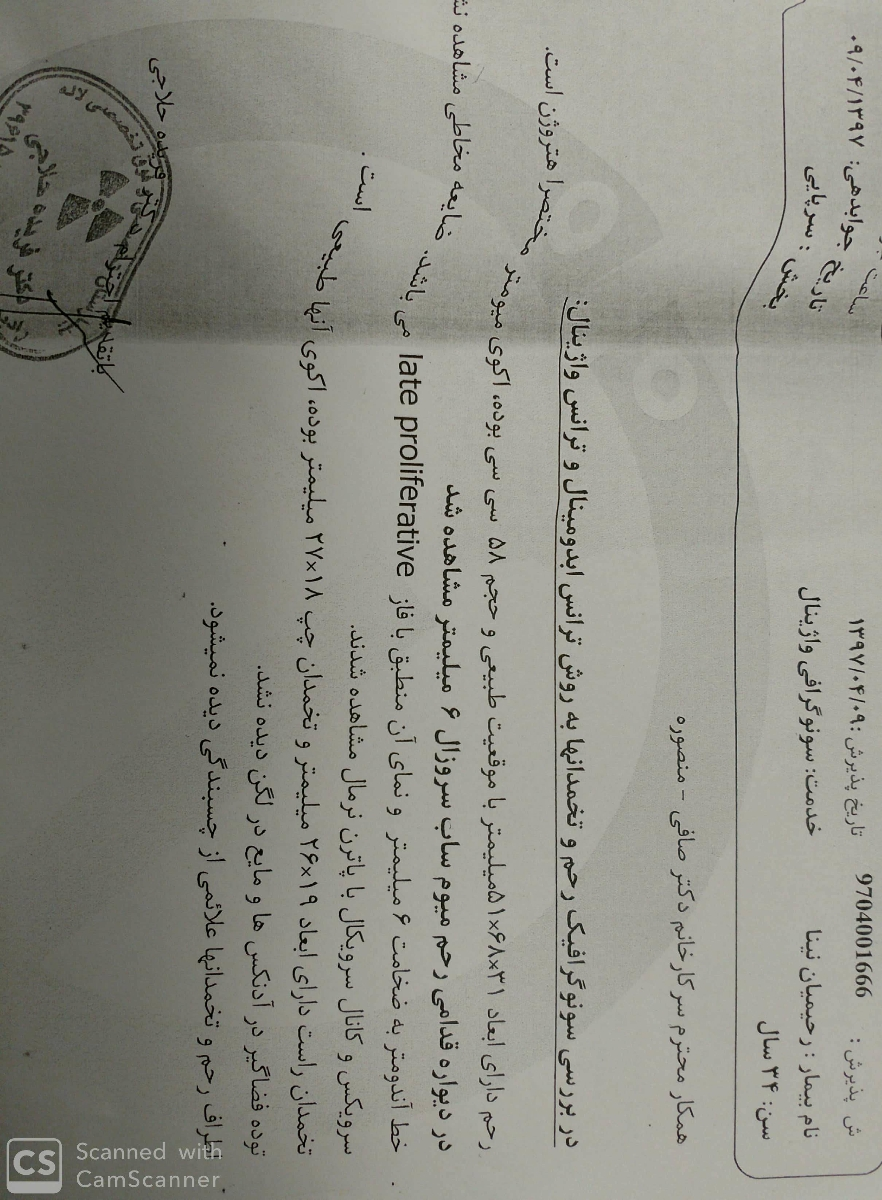 ش پذیرش : 9704001666 تاریخ پذیرش :۱۳۹۷/۰۴/۰۹ ساعت
نام بیمار : رحیمیان نینا خدمت: سونوگرافی واژینال تاریخ جوابدهی: ۰۹/۰۴/۱۳۹۷
سن: ۳۴ سال بخش : سرپایی
همکار محترم سرکارخانم دکتر صافی - منصوره
در بررسی سونوگرافیک رحم و تخمدانها به روش ترانس ابدومینال و ترانس واژینال:
رحم دارای ابعاد ۵۱×۶۸×۳۱میلیمتر با موقعیت طبیعی و حجم ۵۸ سی سی بوده، اکوی میومتر مختصرا هتروژن است.
در دیواره قدامی رحم میوم ساب سروزال ۶ میلیمتر مشاهده شد
خط آندومتر به ضخامت ۶ میلیمتر و نمای آن منطبق با فاز late proliferative می باشد. ضایعه مخاطی مشاهده
سرویکس و کانال سرویکال با پاترن نرمال مشاهده شدند.
تخمدان راست دارای ابعاد ۲۶×۱۹ میلیمتر و تخمدان چپ ۲۷×۱۸ میلیمتر بوده، اکوی آنها طبیعی است .
توده فضاگیر در آدنکس ها و مایع در لگن دیده نشد.
اطراف رحم و تخمدانها علائمی از چسبندگی دیده نمیشود.
باتقدیم احترام
دکتر فریده حلاجی
دکتر فریده حلاجی
CS Scanned with
CamScanner